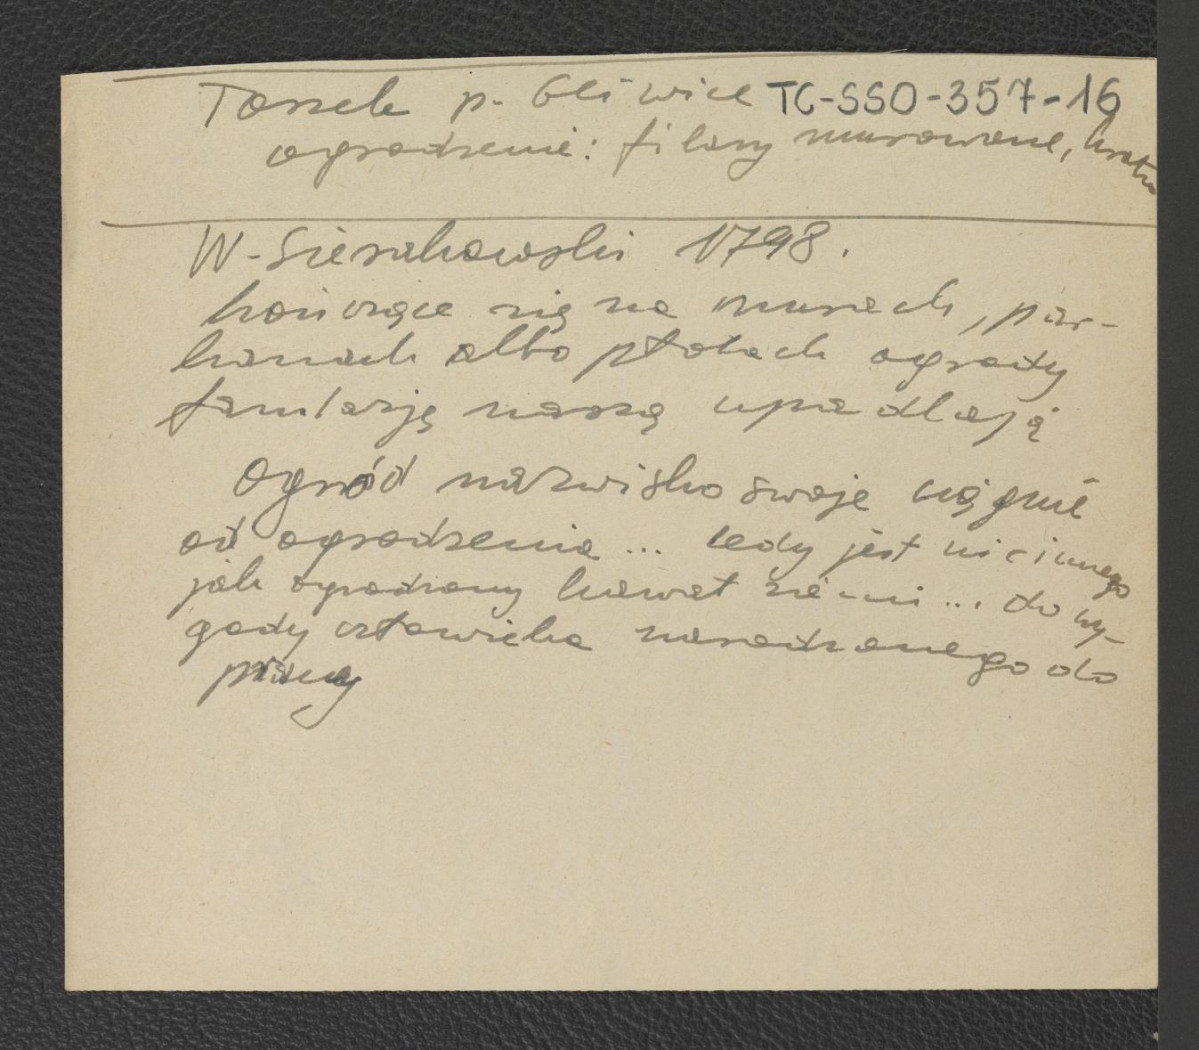 Toszek p. Gliwice TC-SSO-357-16
ogrodzenie: filary murowane, krata
W. Sierakowski 1798.
kończące się na murach, par-
kanach albo płotach ogrody
fantazję naszą upadlają
Ogród nazwisko swoje ciągnie
od ogrodzenia ... tedy jest nic innego
jak ogrodzony kawał ziemi ... do wy-
gody człowieka narodzonego do
pracy